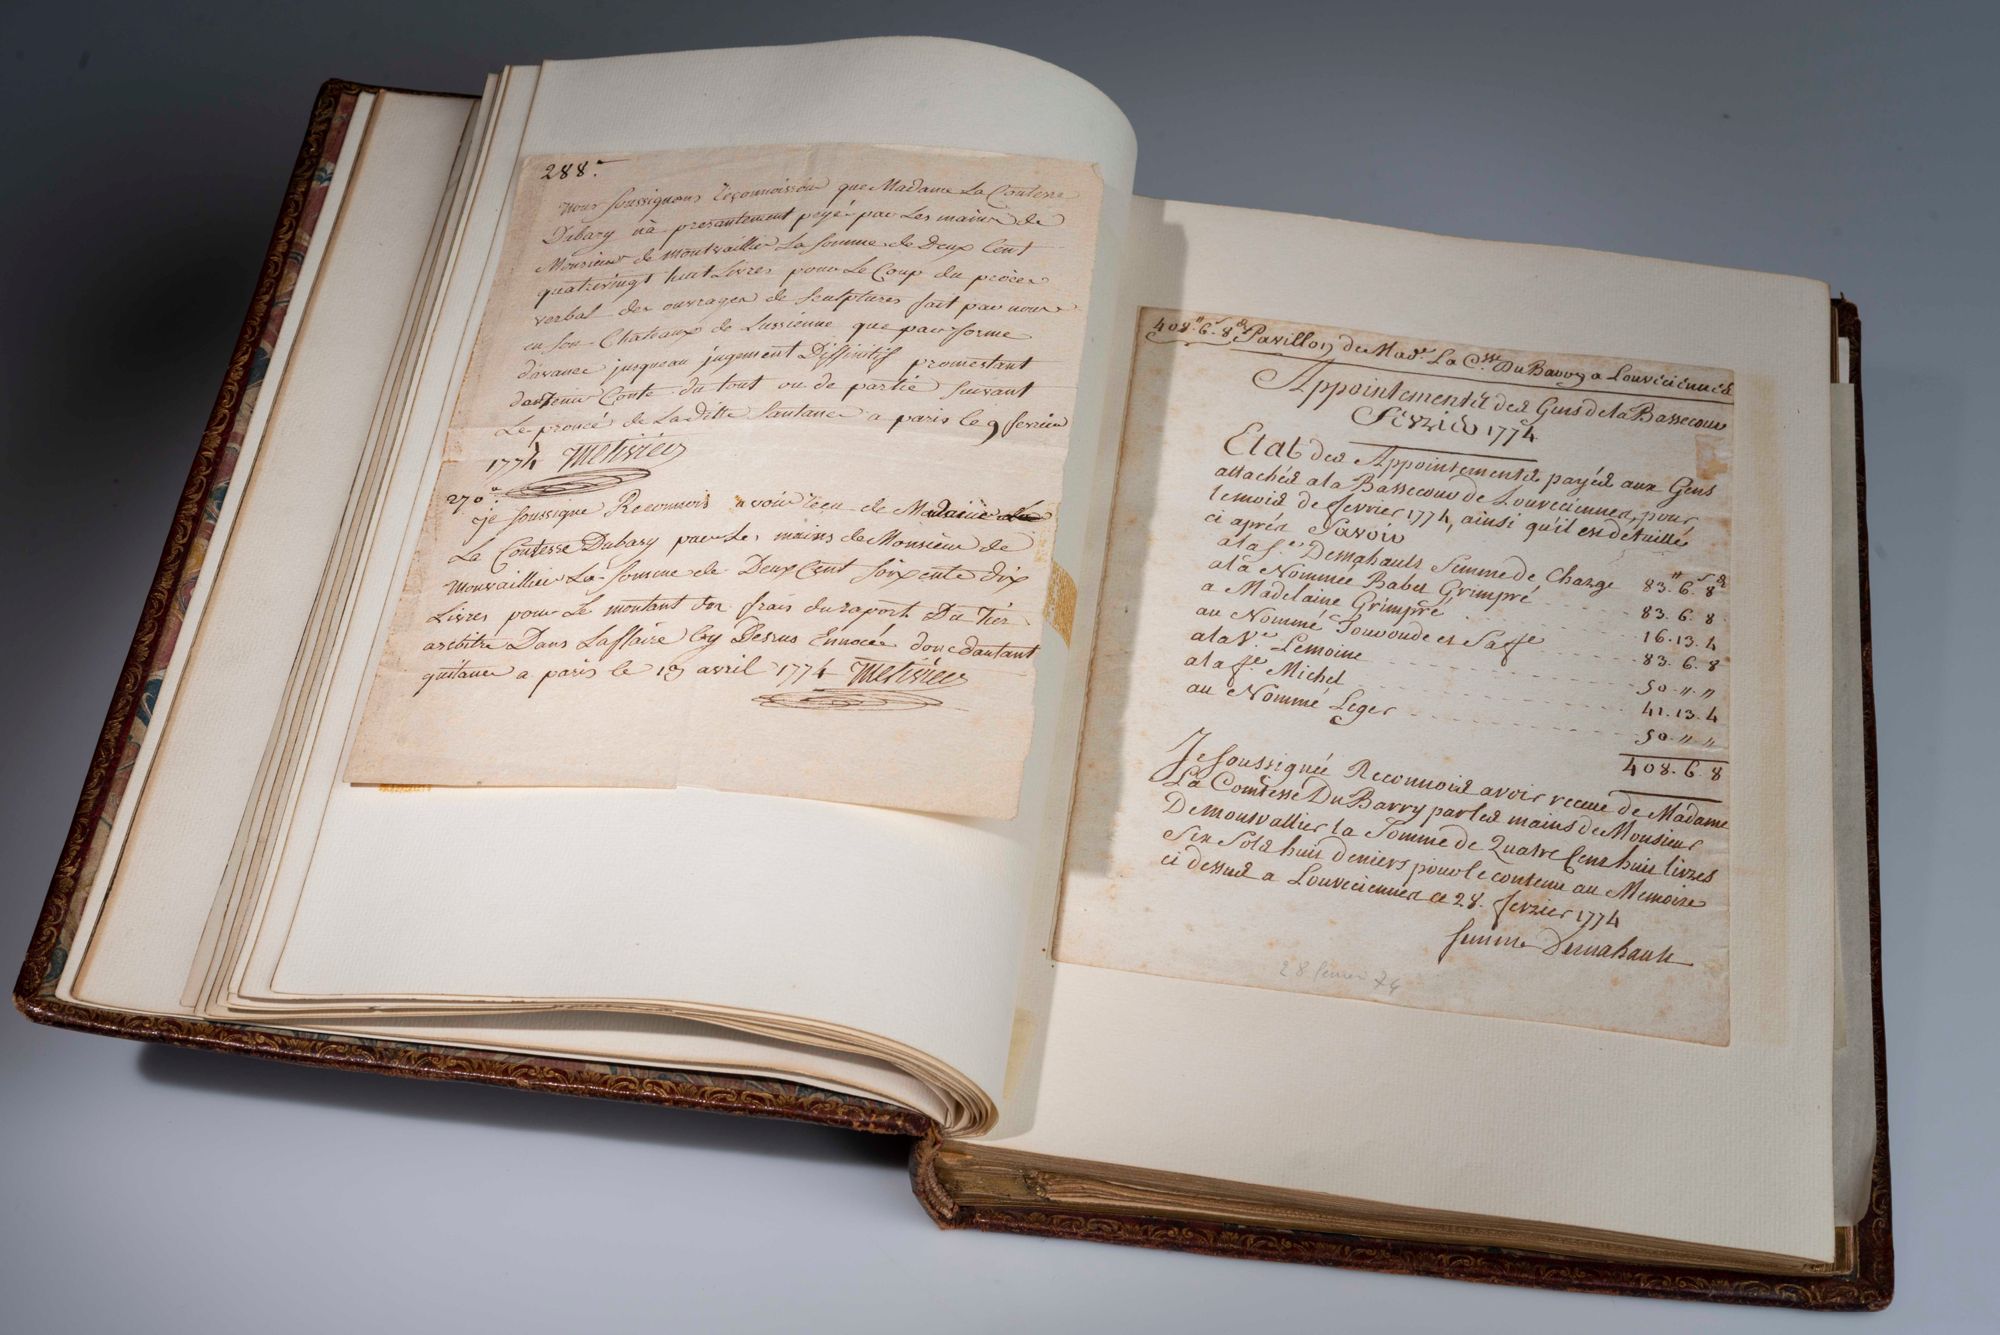 288.
nous soussignons reconnoisson que Madame La Contesse
Dubary ná presantement peyé par Les mains de
Monsieur de montvaillier La somme de Deux Cent
quatrevingt huit Livres pour Le Coup du proces
verbal des ouvrages de sculptures fait par nous
en son Chateaux de Lussienne que par forme
davance jusqueau jugement Diffinitif promestant
Conte du tout ou de partie suivant
Le pronće de La Ditte santance a paris le 9 fevrier
1774 Metivier
270
je soussigne Reconnois avoir recu de Madame
La Contesse Dubary par les mains de Monsieur de
Monvaillier La somme de Deux Cent soixente dix
Livres pour Le montant der frais du raport Du tier
arbitre Dans Laffaire Cy Dessus Ennoce donc dautant
quitance a paris le 19 avril 1774 Metivier
408.ᴴ 6.ˢ 8.ᵈ Pavillon de Mad.ᵉ La C.sse DuBarry a Louveciennes
Appointements des Gens de la Bassecour
Fevrier 1774
Etat des Appointements payés aux Gens
attachés a la Bassecour de Louveciennes, pour
le mois de fevrier 1774, ainsi qu'il est détaillé
ci aprés Savoir
a la f.e Demahault femme de Charge 83.ᴴ 6.ˢ 8.ᵈ
a la Nommée Babet Grimpré 83. 6. 8
a Madelaine Grimpré 16. 13. 4
au Nommé et Sa ffe 83. 6. 8
a la V.e Lemoine 50. " "
a la ffe Michel 41. 13. 4
au Nommé Leger 50. " "
408. 6. 8
Je soussignée Reconnois avoir recue de Madame
La Comtesse DuBarry par les mains de Monsieur
Demonvallier la Somme de Quatre Cent huit livres
Six Sols huit deniers pour le contenu au Memoire
ci dessus a Louveciennes ce 28. fevrier 1774
femme Demahault
28 fevrier 74